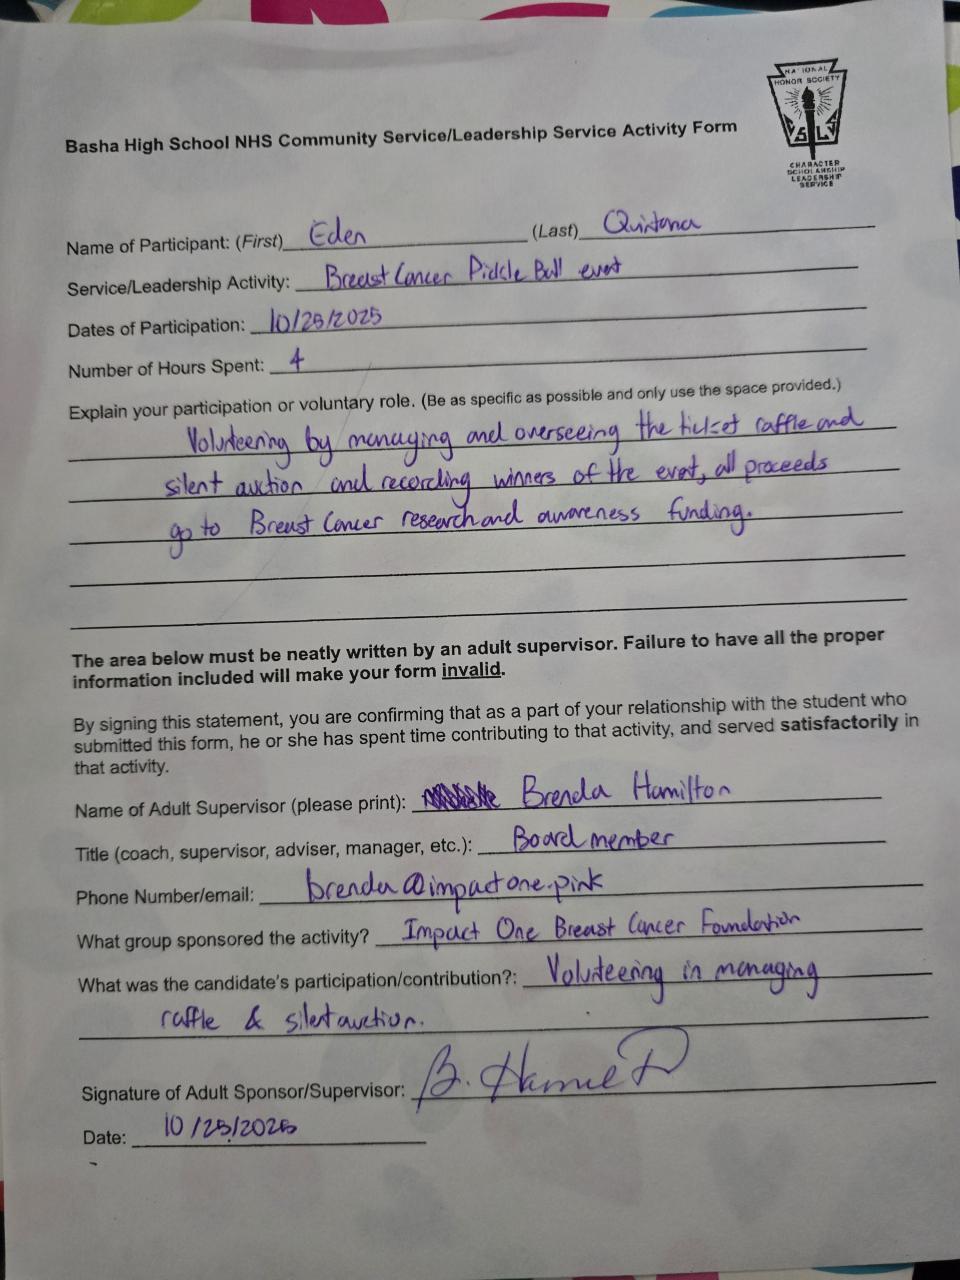 NATIONAL
HONOR SOCIETY
S L
CHARACTER
SCHOLARSHIP
LEADERSHIP
SERVICE
Basha High School NHS Community Service/Leadership Service Activity Form
Name of Participant: (First) Eden (Last) Quintana
Service/Leadership Activity: Breast Cancer Pickle Ball event
Dates of Participation: 10/25/2025
Number of Hours Spent: 4
Explain your participation or voluntary role. (Be as specific as possible and only use the space provided.)
Volunteering by managing and overseeing the ticket raffle and
silent auction and recording winners of the event, all proceeds
go to Breast Cancer research and awareness funding.
The area below must be neatly written by an adult supervisor. Failure to have all the proper
information included will make your form invalid.
By signing this statement, you are confirming that as a part of your relationship with the student who
submitted this form, he or she has spent time contributing to that activity, and served satisfactorily in
that activity.
Name of Adult Supervisor (please print): Brenda Hamilton
Title (coach, supervisor, adviser, manager, etc.): Board member
Phone Number/email: brenda@impactone.pink
What group sponsored the activity? Impact One Breast Cancer Foundation
What was the candidate's participation/contribution?: Volunteering in managing
raffle & silent auction.
Signature of Adult Sponsor/Supervisor: B.
Date: 10/25/2025